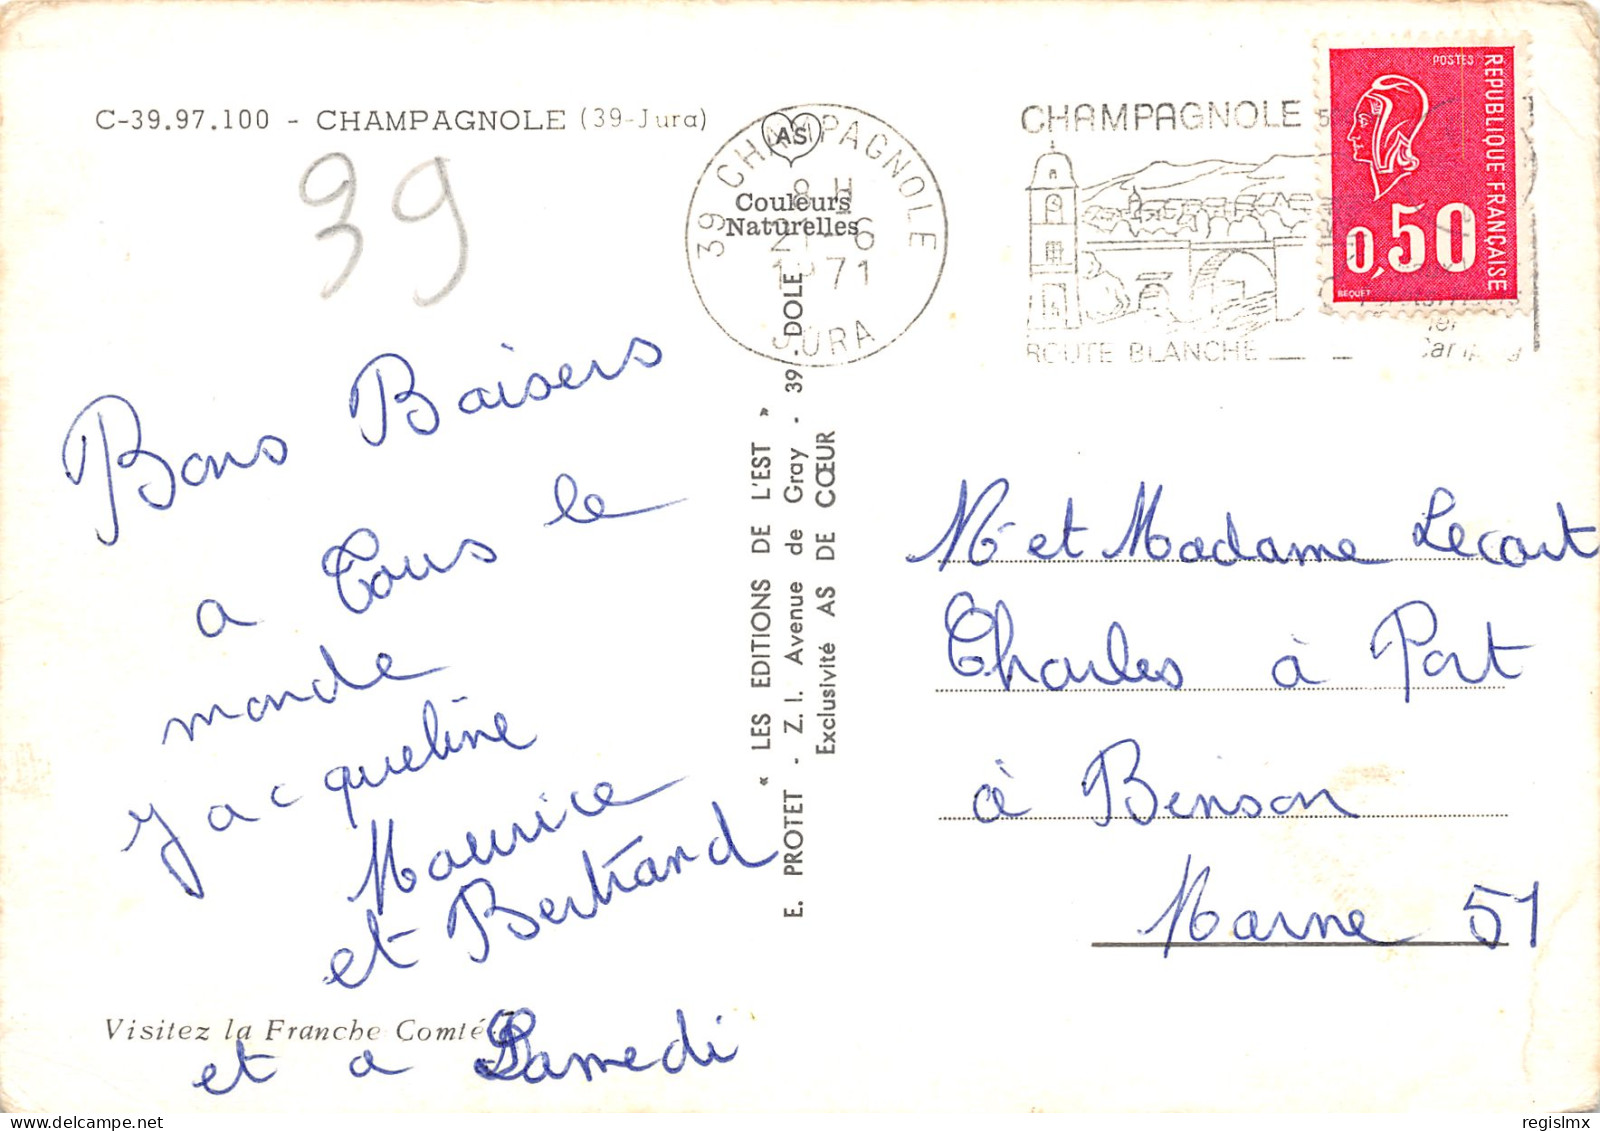 C-39.97.100 - CHAMPAGNOLE (39-Jura)
39
Bons Baisers
a Tous le
monde
Jacqueline
Maurice
et Bertrand
Visitez la Franche Comté
et a Samedi
AS
Couleurs
Naturelles
39 CHAMPAGNOLE
8 H
21-6
1971
JURA
« LES EDITIONS DE L'EST »
E. PROTET - Z. I. Avenue de Gray - 39 - DOLE
Exclusivité AS DE CŒUR
CHAMPAGNOLE
ROUTE BLANCHE
POSTES
REPUBLIQUE FRANÇAISE
0,50
BEQUET
Mr et Madame Lecart
Charles à Port
à Binson
Marne 51
regislmx